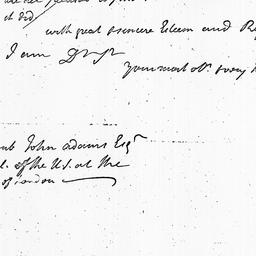 it did
with great & sincere Esteem and Re
I am Dr Sr
your most obt. & very
John Adams Esqr
of the U.S. at the
of London